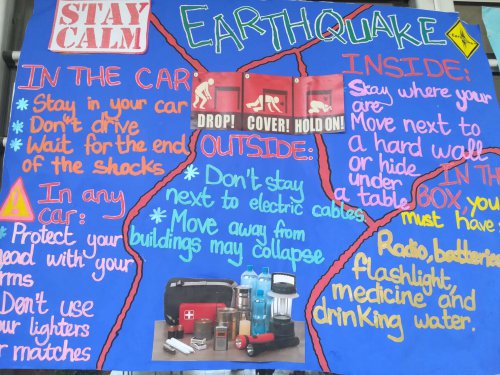 STAY
CALM
EARTHQUAKE
IN THE CAR
* Stay in your car
* Don't drive
* Wait for the end
of the shocks
DROP! COVER! HOLD ON!
INSIDE:
Stay where your
are
Move next to
a hard wall
or hide
under
a table
OUTSIDE:
* Don't stay
next to electric cables
* Move away from
buildings may collapse
In any
car:
* Protect your
ead with your
rms
Don't use
ur lighters
r matches
IN TH
BOX, you
must have
Radio, batteries
flashlight,
medicine and
drinking water.